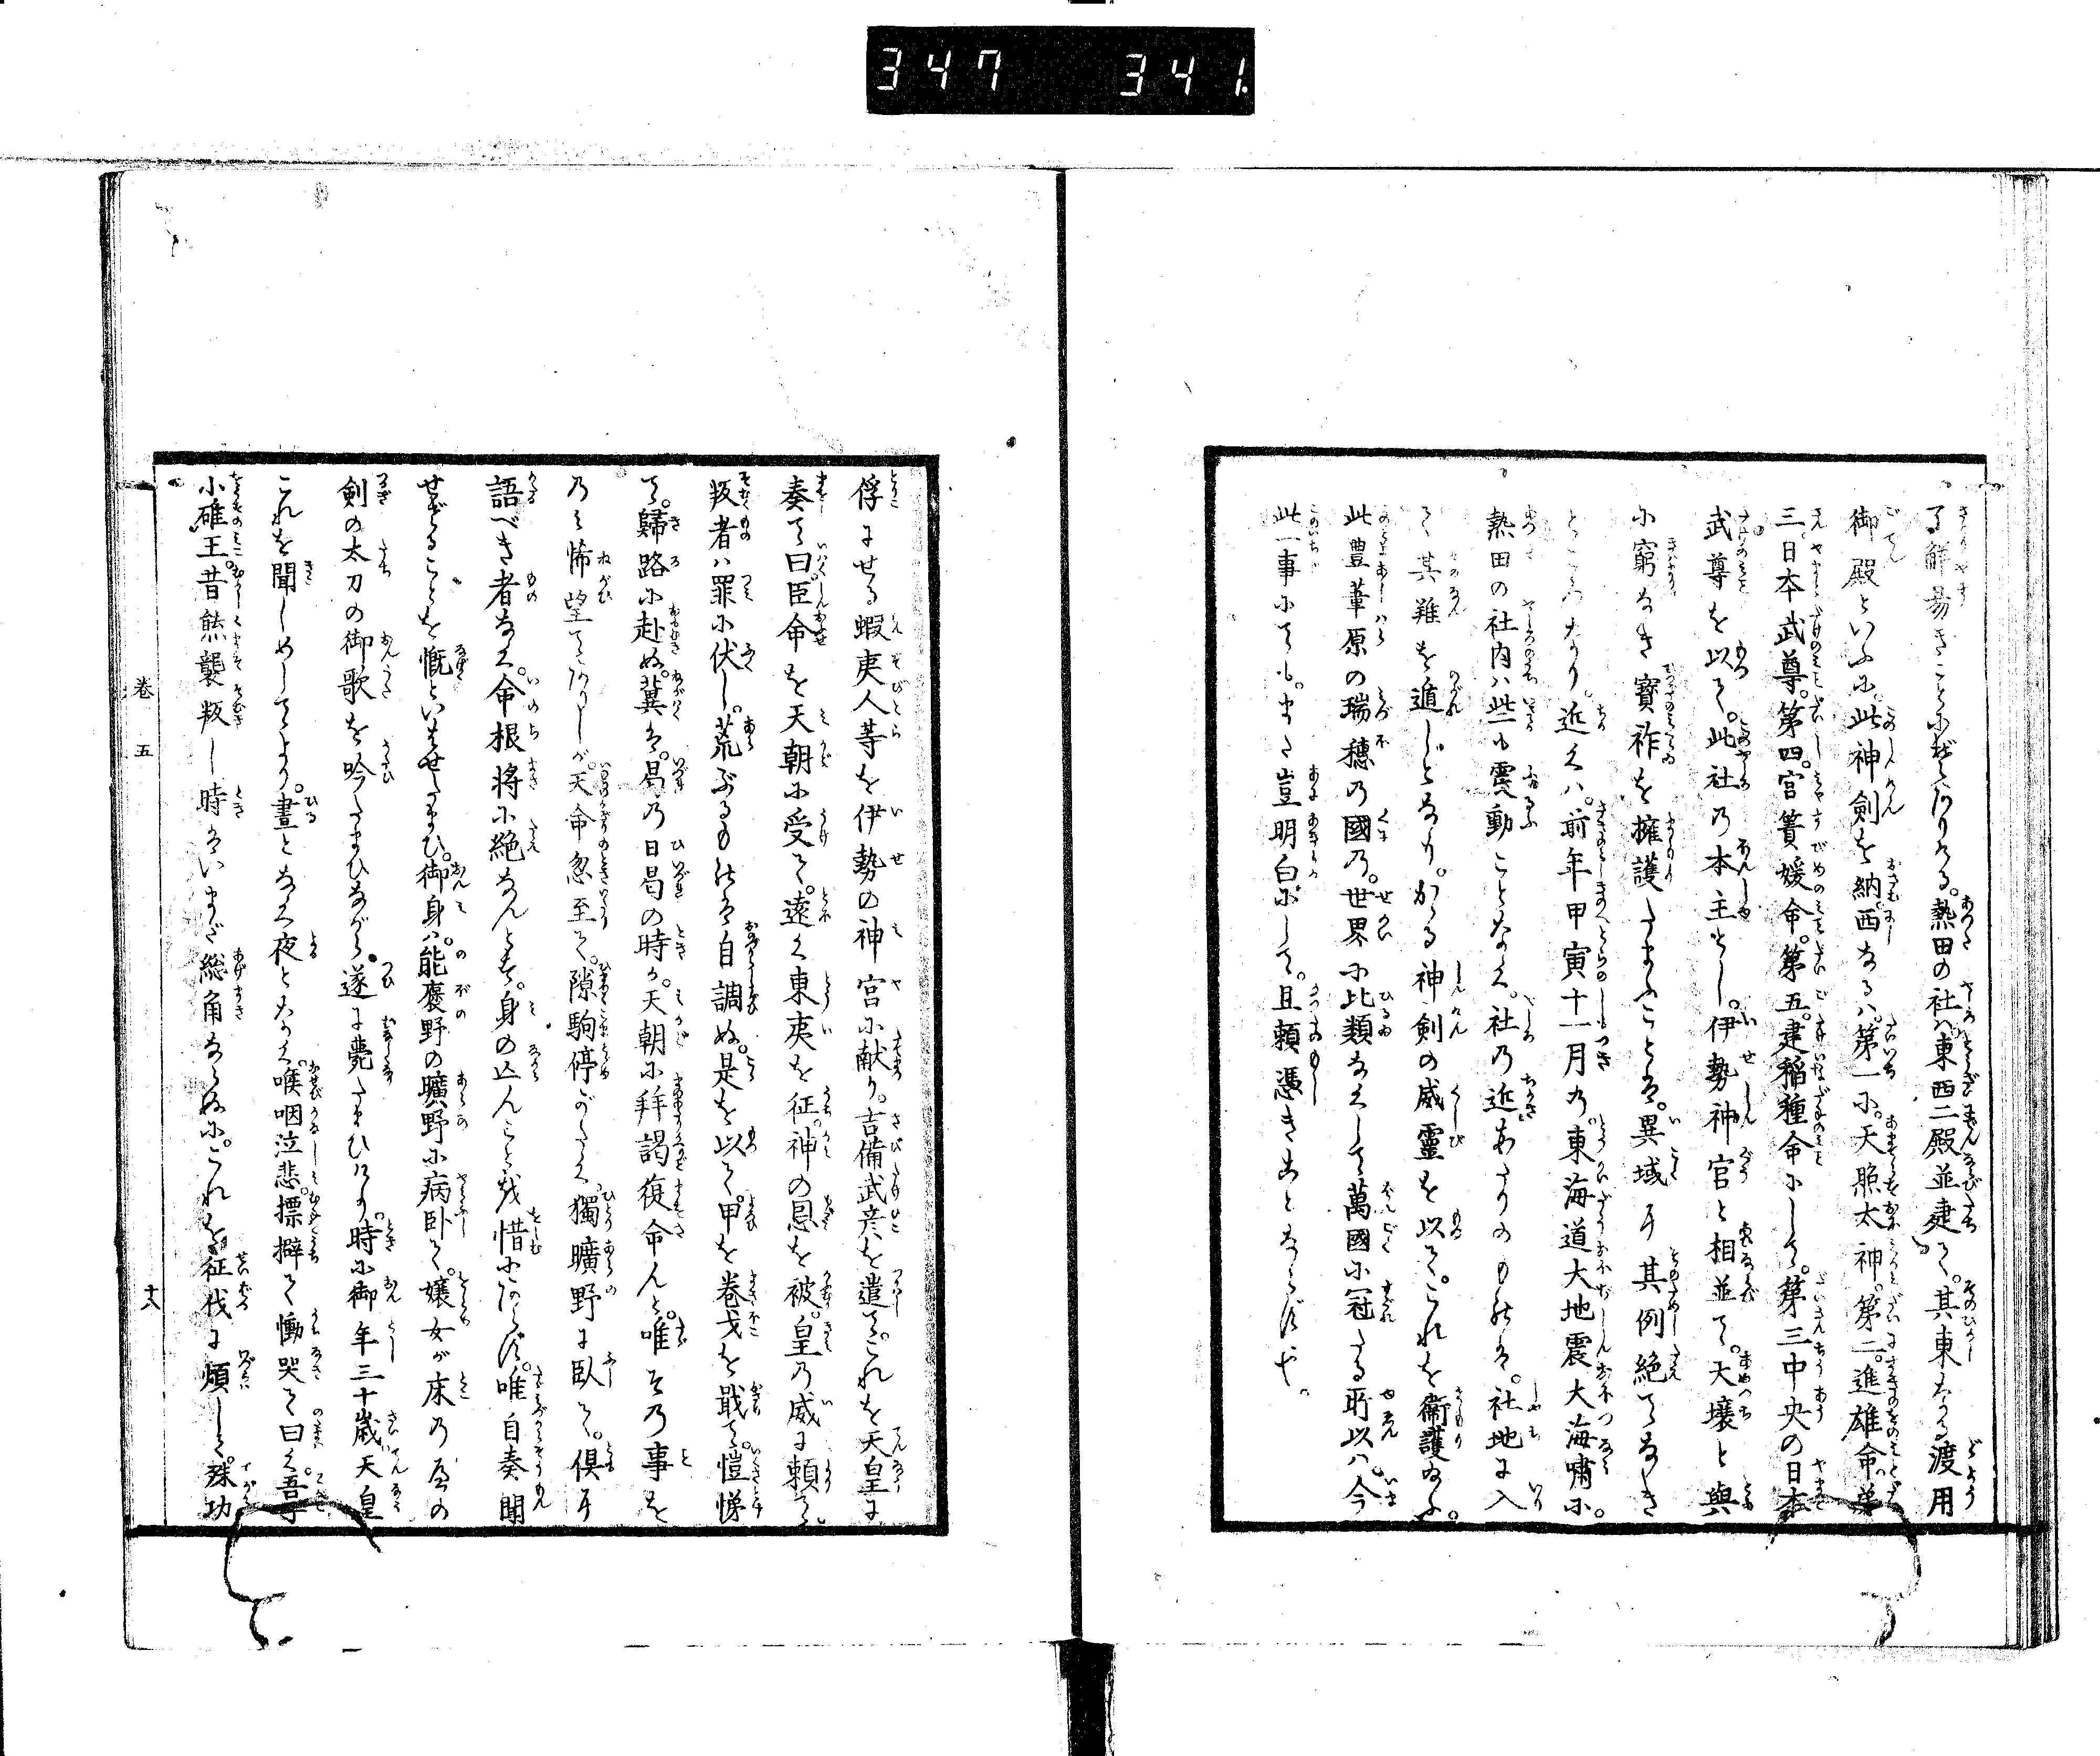 347 341.
了解易きことにぞありける。熱田の社は東西二殿並建て。其東なる渡用
御殿といふに。此神剣を納。西なるは。第一に。天照太神。第二。進雄命。第
三。日本武尊。第四。宮簀媛命。第五。建稲種命にして。第三中央の日本
武尊を以て。此社の本主とし。伊勢神宮と相並て。天壌と與
に窮なき寶祚を擁護たまふことは。異域に其例絶てなき
ところなり。近くは。前年甲寅十一月の。東海道大地震大海嘯に。
熱田の社内は些も震動ことなく。社の近あたりのものは。社地に入
て其難を遁しとなり。かゝる神剣の威靈を以て。これを衞護給ふ。
此豊葦原の瑞穂の國の。世界に比類なくして萬國に冠たる所以は。今
此一事にても。また豈明白にして。且頼憑きことならずや。
俘にせる蝦夷人等を伊勢の神宮に献り。吉備武彦を遣て。これを天皇に
奏て曰。臣命を天朝に受て。遠く東夷を征。神の恩を被。皇の威に頼て。
叛者は罪に伏し。荒ぶるものは自調ぬ。是を以て。甲を巻戈を戢て。愷悌
て。歸路に赴ぬ。冀は。曷の日曷の時か。天朝に拜謁復命んと。唯その事を
のみ怖望てありしが。天命忽至て。隙駟停がたく。獨曠野に臥て。倶に
語べき者なく。命根将に絶なんとす。身の亾んことを惜にあらず。唯自奏聞
せざることを慨といはせたまひ。御身は。能褒野の曠野に病卧て。嬢女が床の邊の
剣の太刀の御歌を吟たまひながら。遂に薨たまひけり。時に御年三十歳。天皇
これを聞しめしてより。晝となく夜となく。喉咽泣悲。摽擗て慟哭て曰く。吾子
小碓王。昔熊襲叛し時は。いまだ総角ならぬに。これを征伐に煩して。殊功
巻五
十八